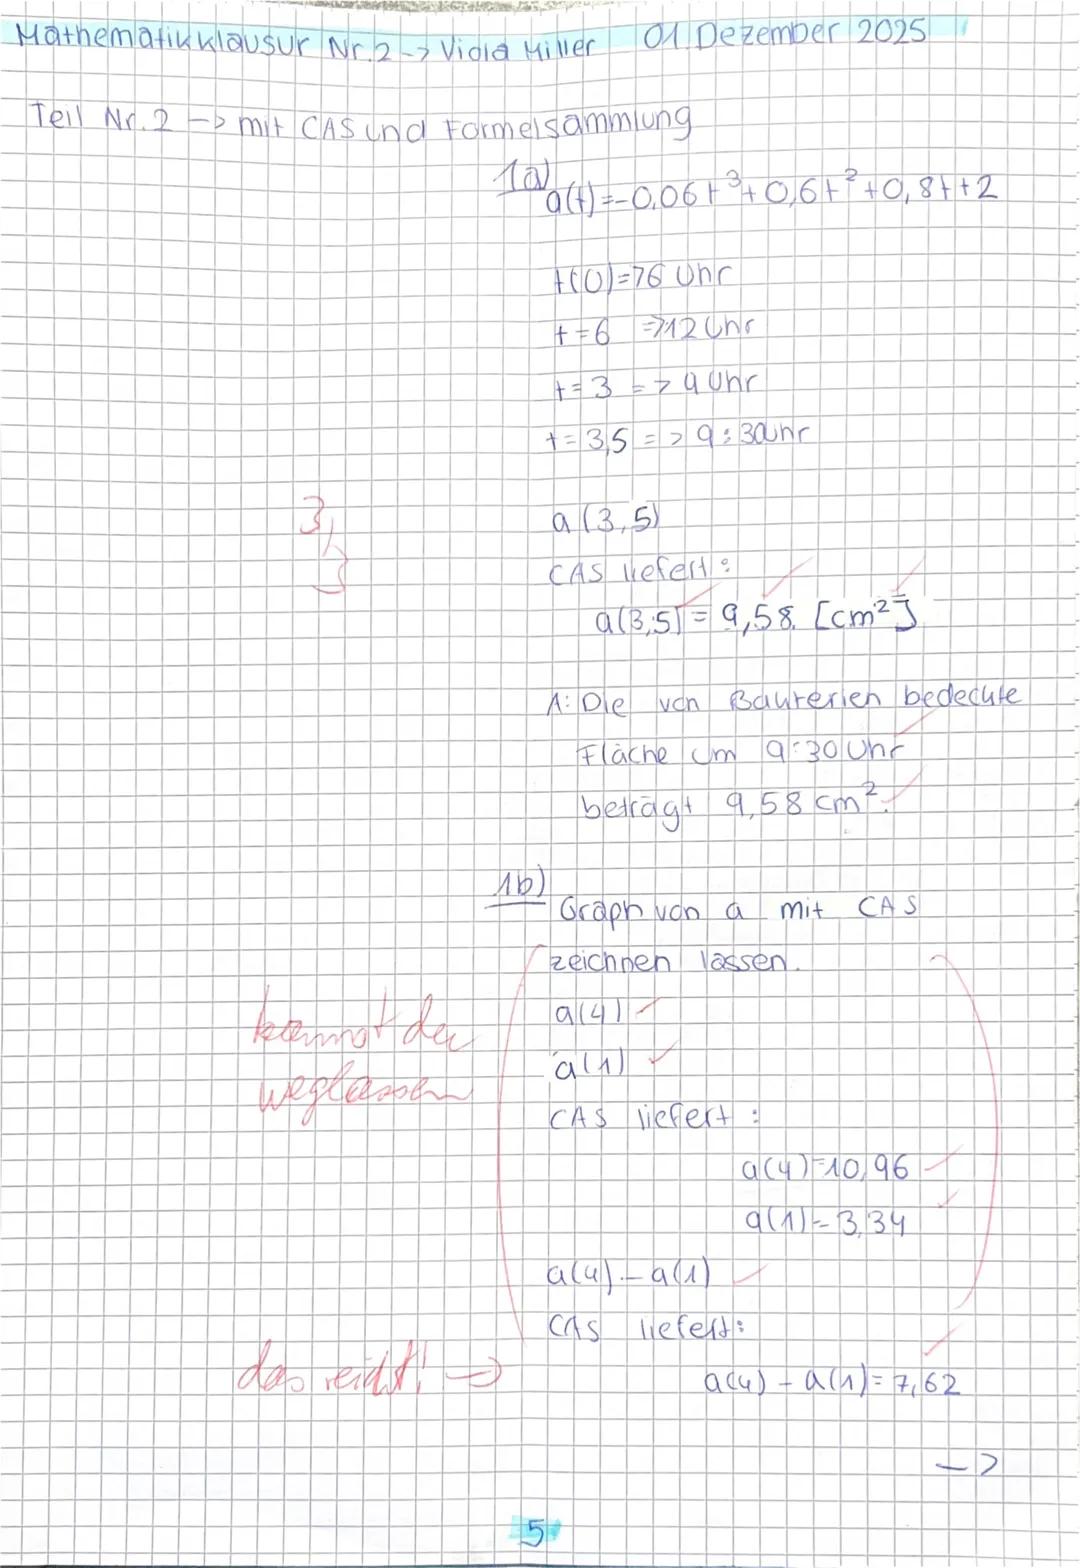 Mathematikklausur Nr.2 -> Viola Miller 01 Dezember 2025
Teil Nr. 2 -> mit CAS und Formelsammlung
1a)
a(t)=-0,06t³+0,6t²+0,8t+2
t(0)=76 Uhr
t=6 =>12 Uhr
t=3 => 9 Uhr
t=3,5 => 9:30Uhr
a(3,5)
3/3
CAS liefert:
a(3,5)=9,58 [cm²]
A: Die von Bakterien bedeckte
Fläche um 9:30 Uhr
beträgt 9,58 cm².
1b)
Graph von a mit CAS
zeichnen lassen.
a(4)
kannst du
weglassen
a(1)
CAS liefert:
a(4)=10,96
a(1)=3,34
a(4)-a(1)
CAS liefert:
das reicht! =>
a(4)-a(1)=7,62
->
5